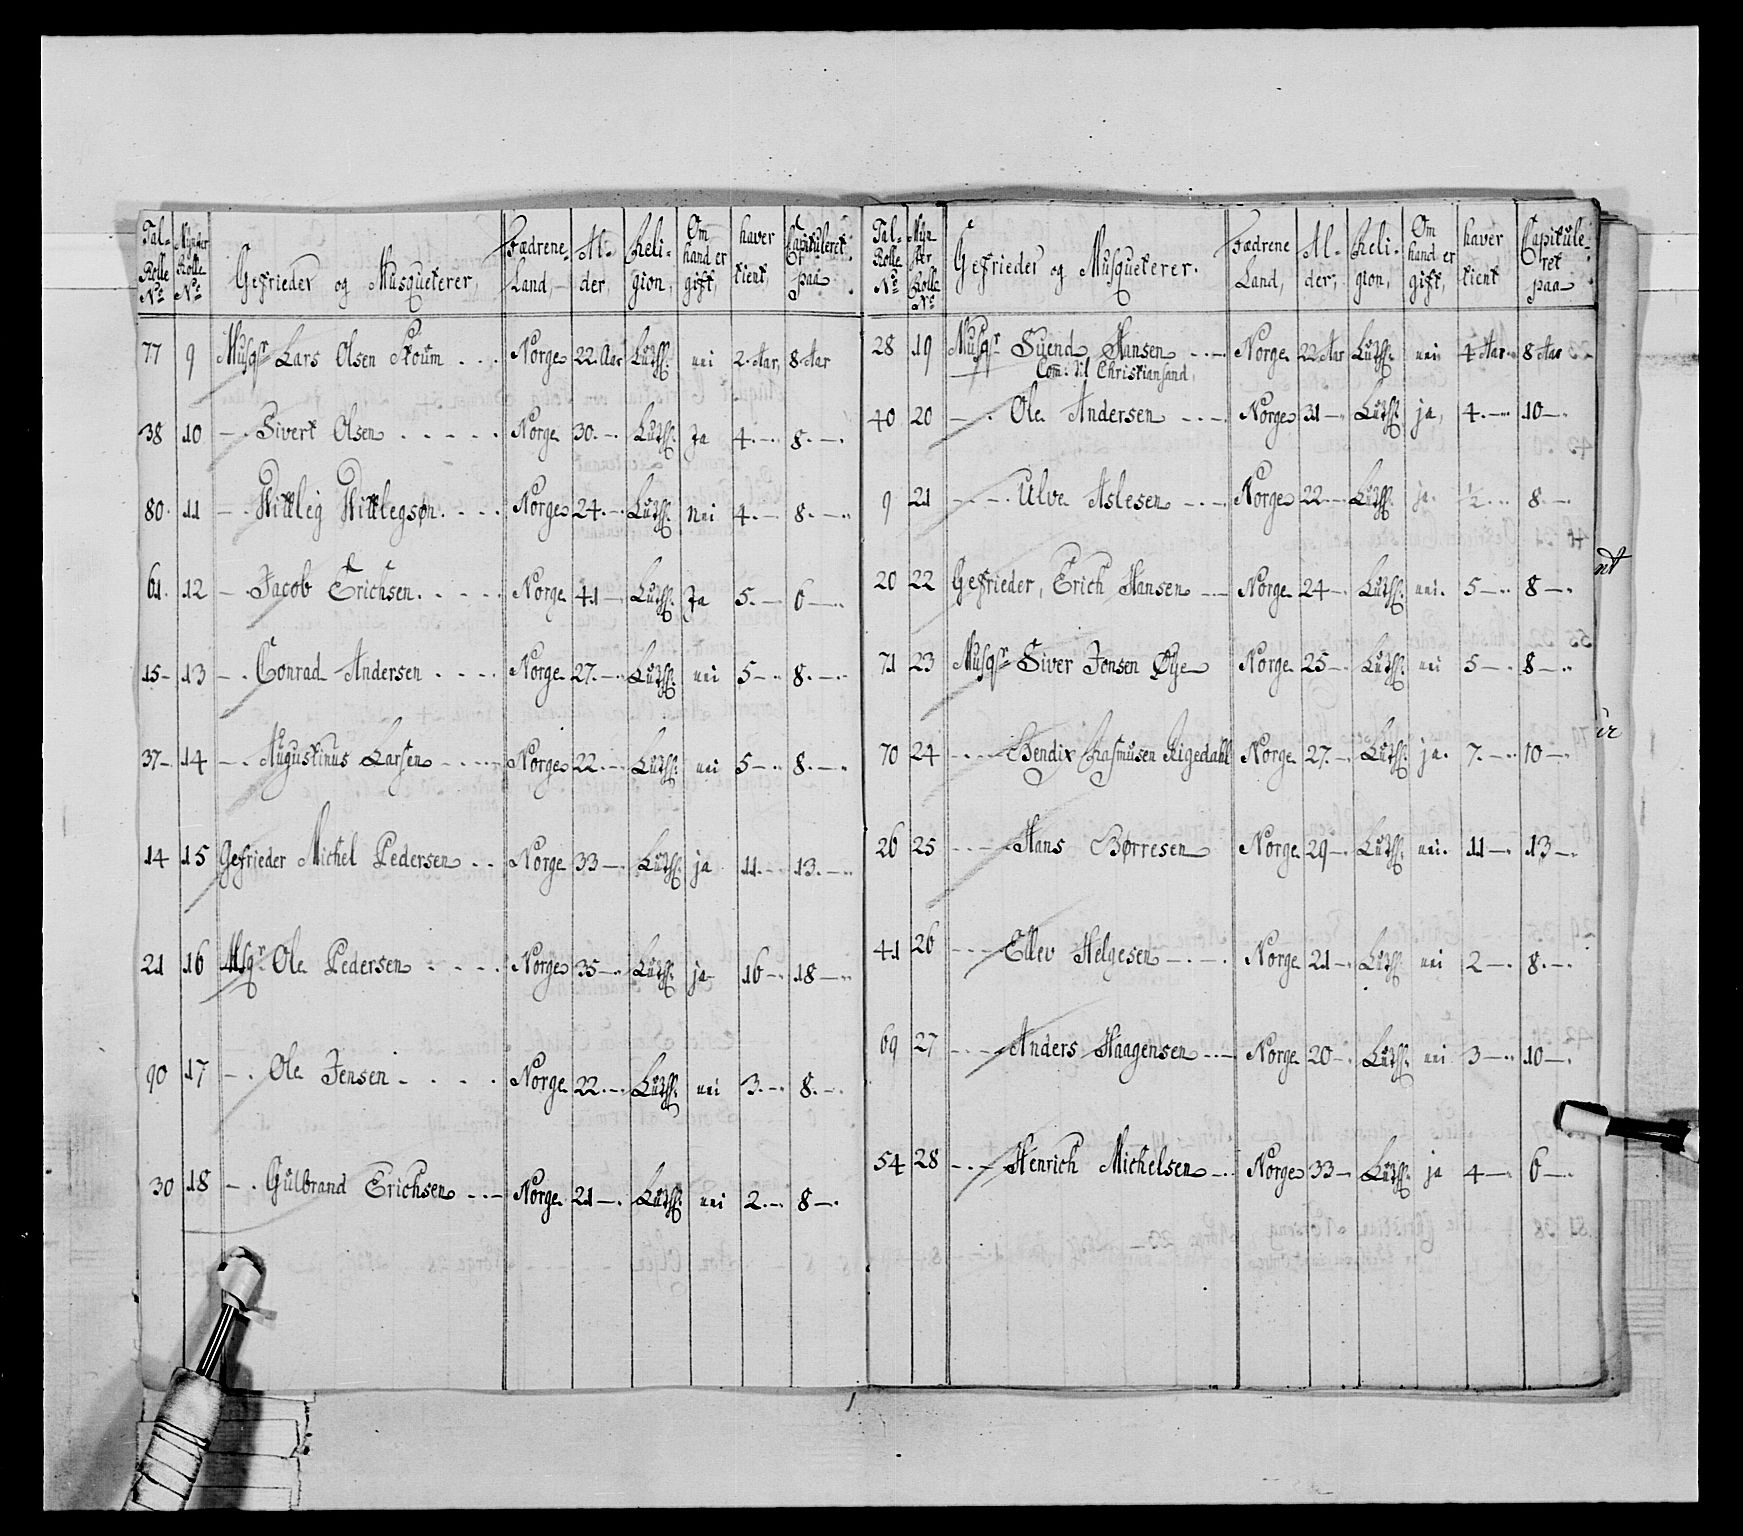 Tal- Rolle No | Mynster Rolle No | Gefrieder og Musqueterer, | Fædrene Land, | Al- der, | Reli- gion, | Om hand er gift, | haver tient, | Capituleret paa
77 9 Musqr Lars Olsen Skoum . . . Norge 22. Aar Luthr. nei 2. Aar, 8 Aar
38 10 — . Sivert Olsen . . . . . Norge 30. — . Luthr. Ja 4. — . 8. — .
80. 11 — . Wittleg Wittlegsøn. . . . Norge 24. — . Luthr. Nei 4. — . 8. — .
61. 12 — . Jacob Erichsen. . . . . Norge 41 — . Luthr. Ja 5. — . 6 — .
15 — 13 — . Conrad Andersen . . . . Norge 27. — . Luthr. nei 5 — . 8. — .
37 — 14 — . Augustinus Larsen . — . — Norge 22. — . Luthr. nei 5 — . 8. — .
14 15 Gefrieder Michel Pedersen . . Norge 33 — . Luthr. ja 11. — . 13. — .
21 16 Msqr. Ole Pedersen . . . . Norge 35 — . Luthr. ja 16 — . 18 — .
90 17 — . Ole Jensen — . . . . Norge 22. — . Luthr. nei 3. — . 8. — .
30 18 — . Gulbrand Erichsen . . — Norge 21 — . Luthr. nei 2. — . 8 — .
Tal- Rolle No | Myn- ster Rolle No | Gefrieder og Musqueterer. | Fædrene Land, | Al- der, | Reli- gion, | Om hand er gift, | haver tient | Capitule- ret paa
28 19 Musqr Suend Hansen . . — Norge 22 Aar Luthr. nei 4 Aar 8 Aar
Com: til Christiansand,
40 20 — . Ole Andersen . — . Norge 31 — . Luthr. ja, 4. — . 10 — .
9 21 — . — . Ulve Aslesen . — . — Norge 22. — . Luthr. ja. ½ — . 8. — .
20 22 Gefrieder, Erich Hansen . — Norge 24 — . Luthr. nei. 5 — . 8 — .
71 23 Musqr Siver Jensen Øye Norge 25 — . Luthr. nei 5 — . 8 — .
70 24 — . — . Bendix Rasmusen Rigedahl Norge 27. — . Luthr. ja. 7. — . 10 — .
26 25 — . — Hans Børresen Norge 29 — . Luthr. nei. 11 — . 13 — .
41 26 — . — Ellev Helgesen — . — . Norge 21 — . Luthr. nei 2 — . 8. — .
69 27 — . — Anders Haagensen . — Norge 20 — . Luthr. nei 3 — . 10 — .
54 28 — . — Henrich Michelsen — . Norge 33 — . Luthr. ja 4 — . 6 — .